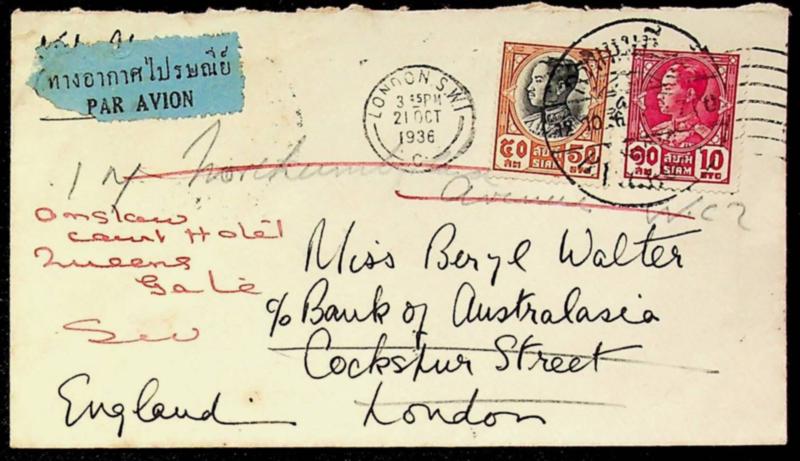 ทางอากาศไปรษณีย์
PAR AVION
LONDON.S.W.1
3 45PM
21 OCT
1936
C
๕๐ สยาม 50
สต. SIAM STG
๑๐ สยาม 10
สต. SIAM STG
Northumberland
Avenue W.C.2
Onslow
Court Hotel
Queens
Gate
SW
Miss Beryl Walter
c/o Bank of Australasia
Cockspur Street
London
England